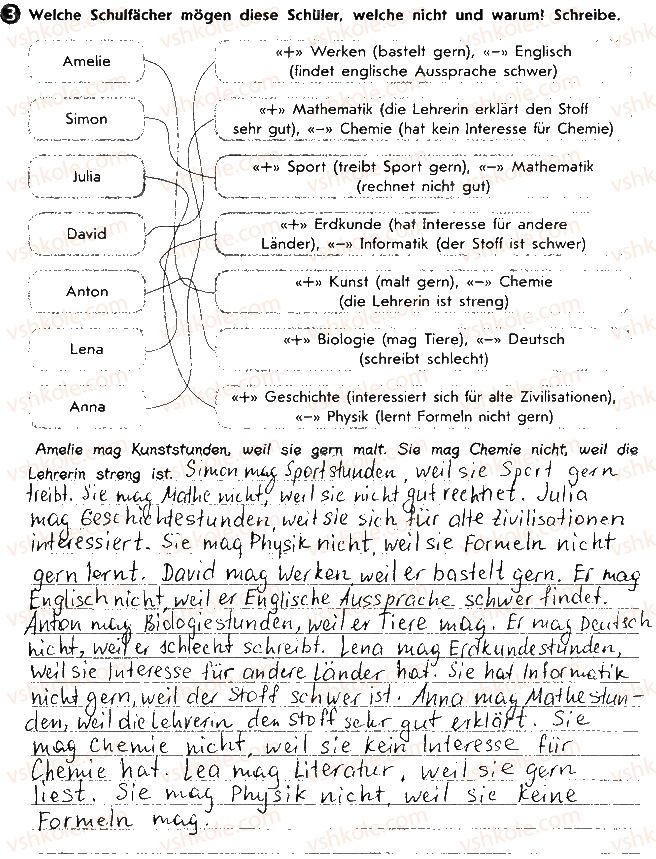 3 Welche Schulfächer mögen diese Schüler, welche nicht und warum? Schreibe.
Amelie
«+» Werken (bastelt gern), «–» Englisch
(findet englische Aussprache schwer)
Simon
«+» Mathematik (die Lehrerin erklärt den Stoff
sehr gut), «–» Chemie (hat kein Interesse für Chemie)
Julia
«+» Sport (treibt Sport gern), «–» Mathematik
(rechnet nicht gut)
David
«+» Erdkunde (hat Interesse für andere
Länder), «–» Informatik (der Stoff ist schwer)
Anton
«+» Kunst (malt gern), «–» Chemie
(die Lehrerin ist streng)
Lena
«+» Biologie (mag Tiere), «–» Deutsch
(schreibt schlecht)
Anna
«+» Geschichte (interessiert sich für alte Zivilisationen),
«–» Physik (lernt Formeln nicht gern)
Amelie mag Kunststunden, weil sie gern malt. Sie mag Chemie nicht, weil die
Lehrerin streng ist. Simon mag Sportstunden, weil sie Sport gern
treibt. Sie mag Mathe nicht, weil sie nicht gut rechnet. Julia
mag Geschichtestunden, weil sie sich für alte Zivilisationen
interessiert. Sie mag Physik nicht, weil sie Formeln nicht
gern lernt. David mag Werken, weil er bastelt gern. Er mag
Englisch nicht, weil er Englische Aussprache schwer findet.
Anton mag Biologiestunden, weil er Tiere mag. Er mag Deutsch
nicht, weil er schlecht schreibt. Lena mag Erdkundestunden,
weil sie Interesse für andere Länder hat. Sie hat Informatik
nicht gern, weil der Stoff schwer ist. Anna mag Mathestun-
den, weil die Lehrerin den Stoff sehr gut erklärt. Sie
mag Chemie nicht, weil sie kein Interesse für
Chemie hat. Lea mag Literatur, weil sie gern
liest. Sie mag Physik nicht, weil sie keine
Formeln mag.